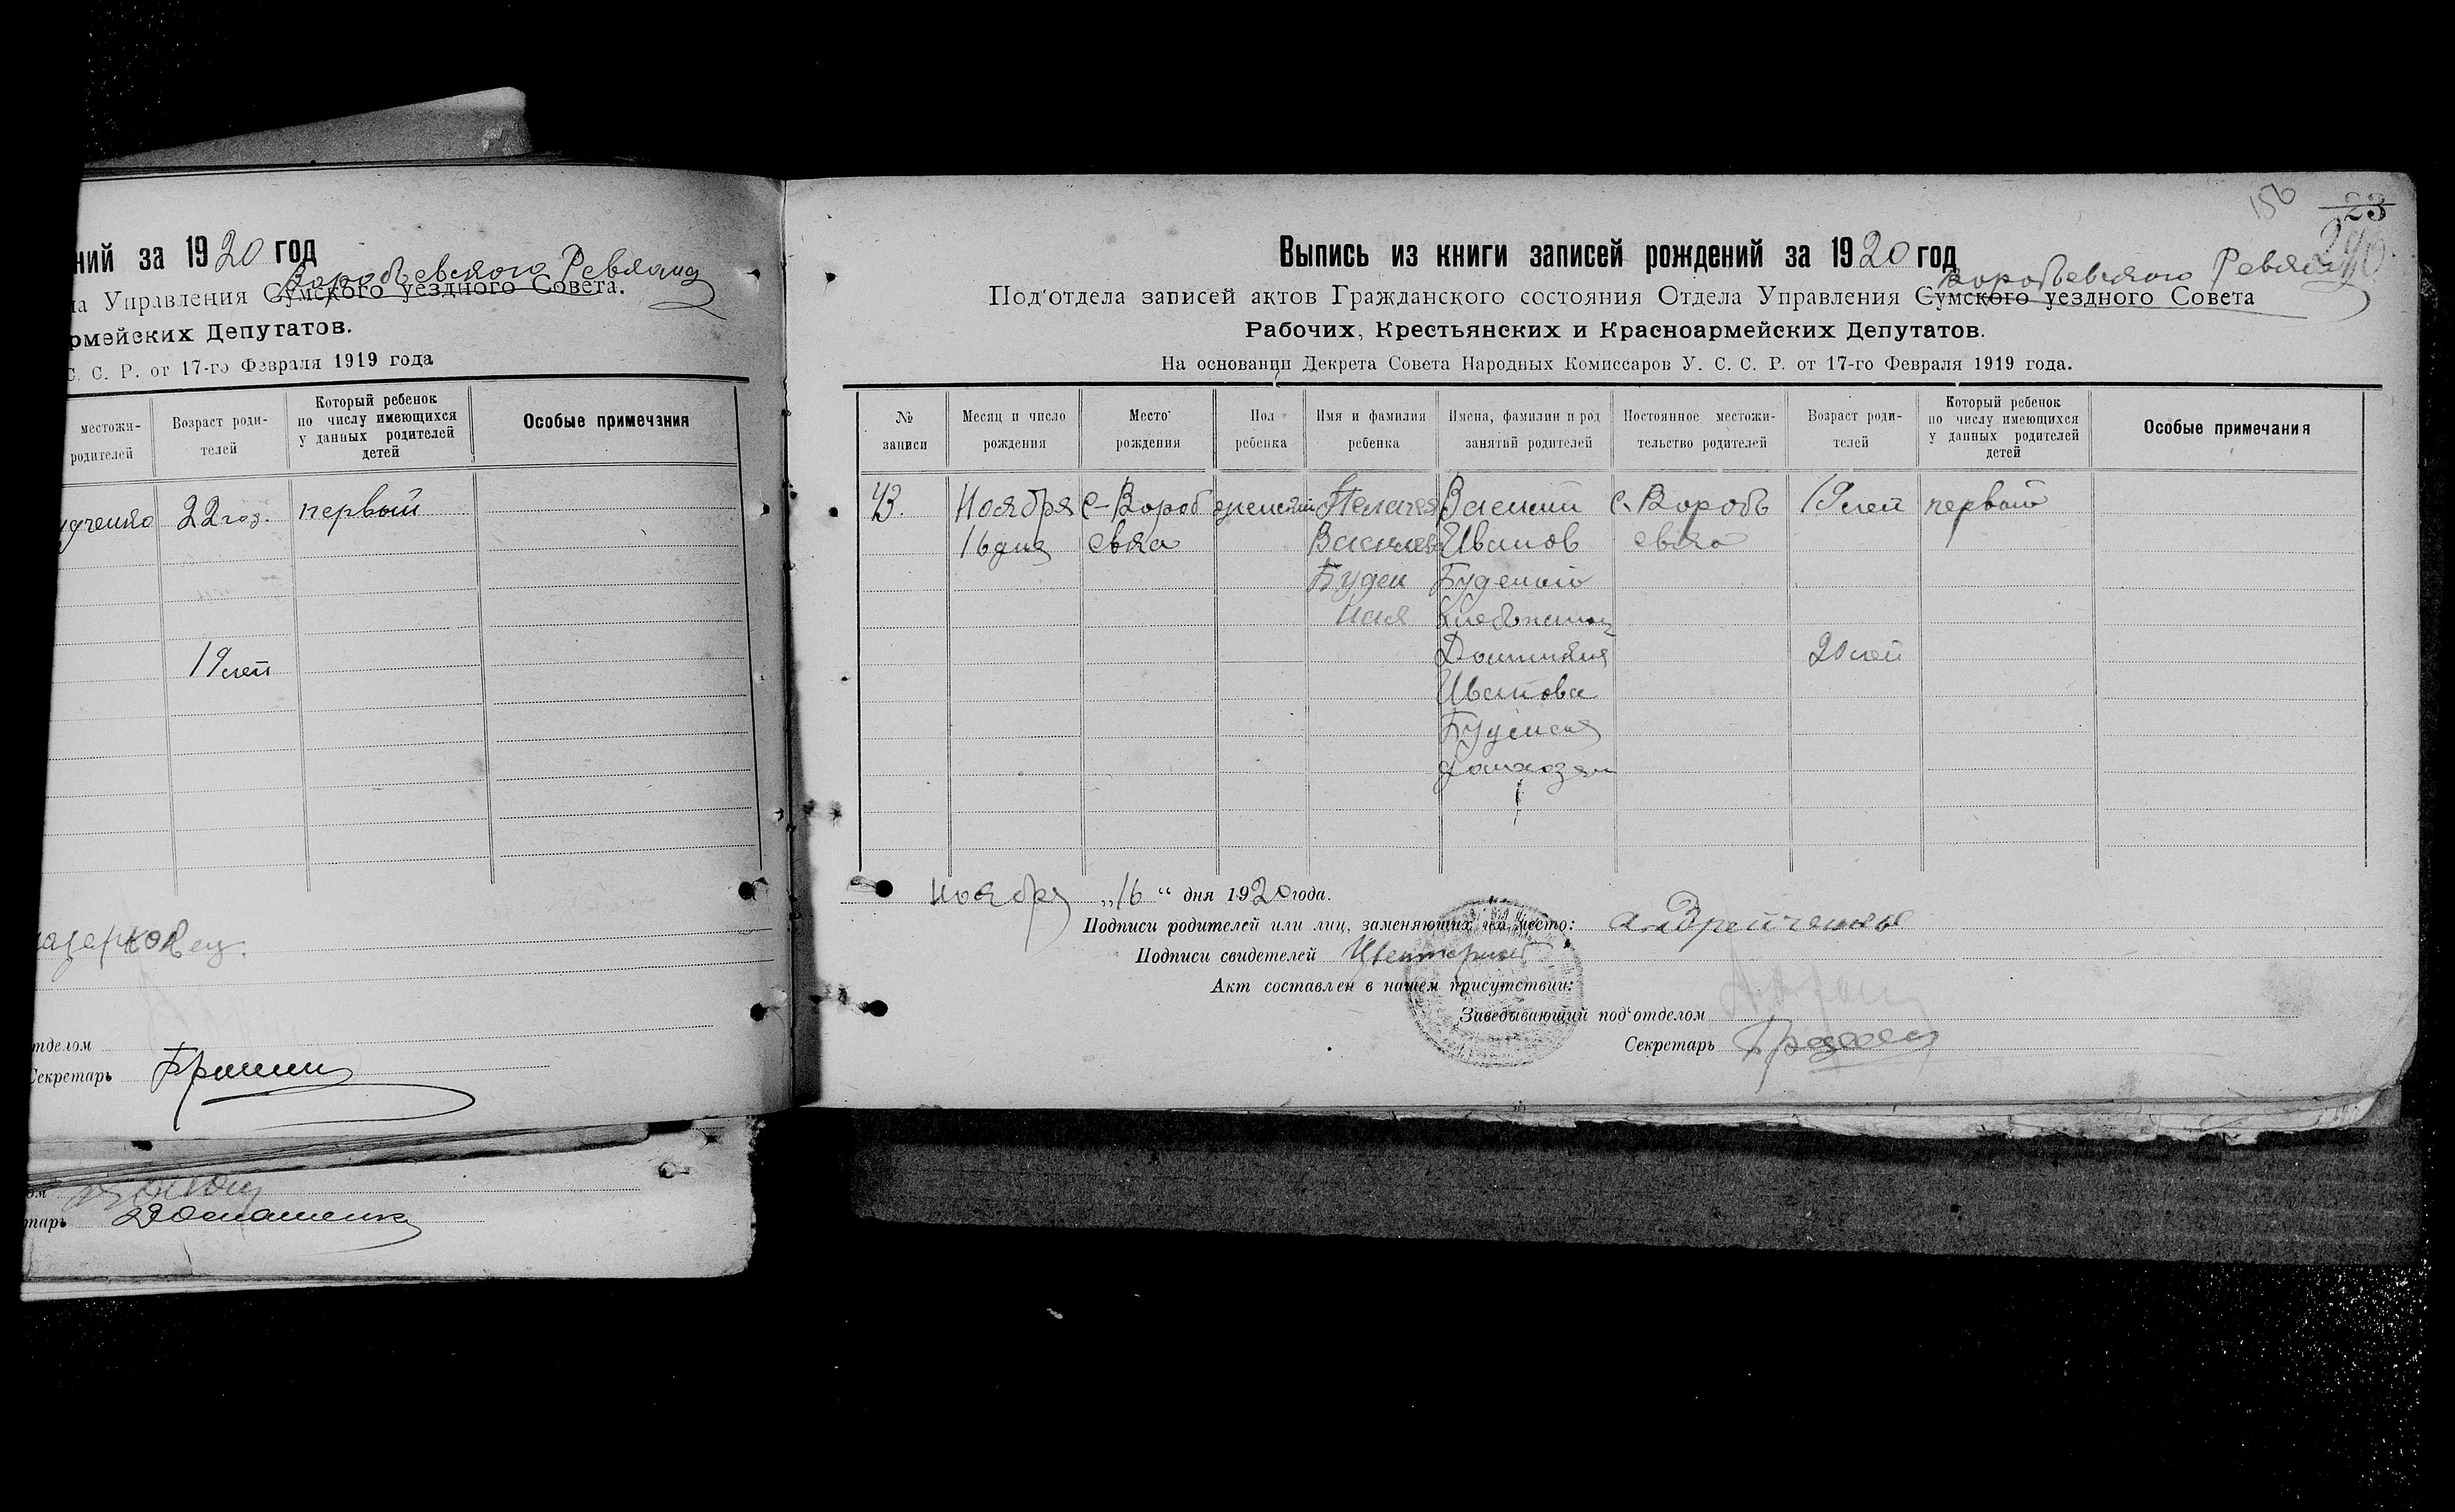 ний за 1920 год
Воробьевского Ревкома
ла Управления Сумского уездного Совета.
рмейских Депутатов.
С. С. Р. от 17-го Февраля 1919 года
местожи-
родителей
Возраст роди-
телей
Который ребенок
по числу имеющихся
у данных родителей
детей
Особые примечания
22 год.
первый
19 лет
отделом
Секретарь
тарь
156
23
240
Выпись из книги записей рождений за 1920 год
Воробьевского Ревкома
Под'отдела записей актов Гражданского состояния Отдела Управления Сумского уездного Совета
Рабочих, Крестьянских и Красноармейских Депутатов.
На основании Декрета Совета Народных Комиссаров У. С. С. Р. от 17-го Февраля 1919 года.
№
записи
Месяц и число
рождения
Место
рождения
Пол
ребенка
Имя и фамилия
ребенка
Имена, фамилии и род
занятий родителей
Постоянное местожи-
тельство родителей
Возраст роди-
телей
Который ребенок
по числу имеющихся
у данных родителей
детей
Особые примечания
43. Ноября с-Вороб женский Пелагея Василий с. Воробь 19 лет первый
16 дня евка Васильев Иванов евка
Буден Буденный
ная хлебопашец
20 лет
Иванова
Буденая
домохозяй
ноября „16“ дня 1920 года.
Подписи родителей или лиц, заменяющих их место: Андрейченко
Подписи свидетелей
Акт составлен в нашем присутствии:
Заведывающий под'отделом
Секретарь